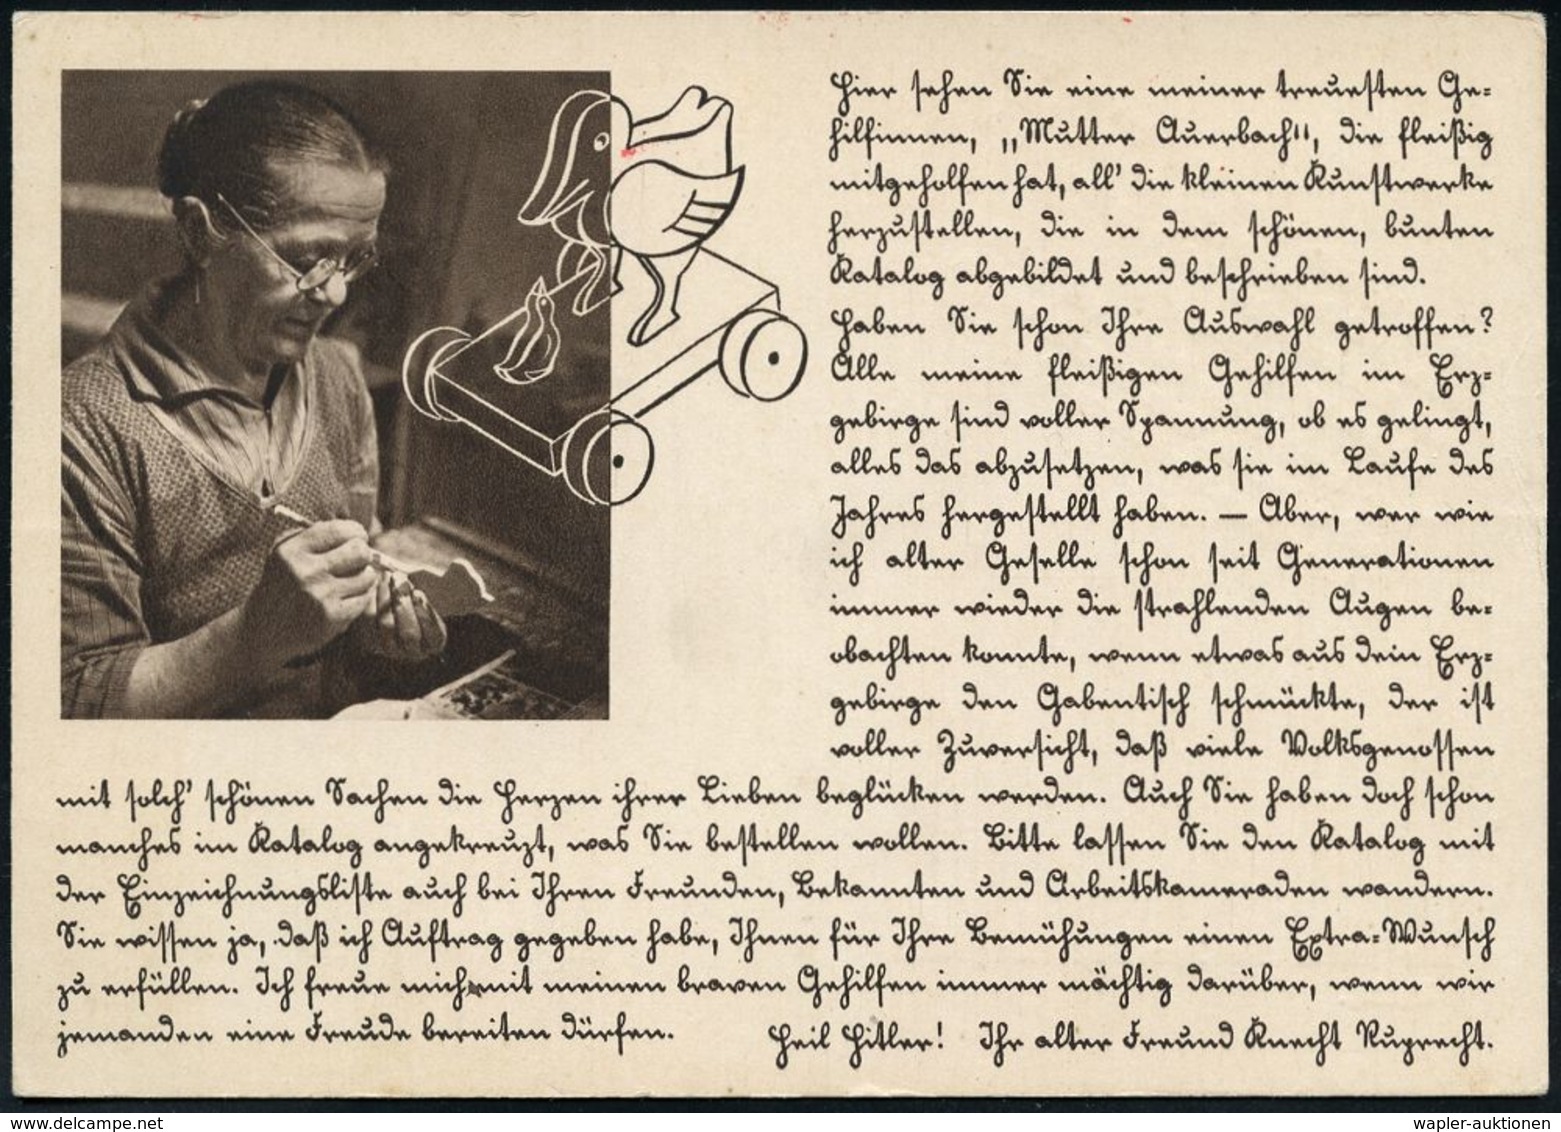 Hier sehen Sie eine meiner treuesten Ge-
hilfinnen, „Mutter Auerbach", die fleißig
mitgeholfen hat, all' die kleinen Kunstwerke
herzustellen, die in dem schönen, bunten
Katalog abgebildet und beschrieben sind.
Haben Sie schon Ihre Auswahl getroffen?
Alle meine fleißigen Gehilfen im Erz-
gebirge sind voller Spannung, ob es gelingt,
alles das abzusetzen, was sie im Laufe des
Jahres hergestellt haben. — Aber, wer wie
ich alter Geselle schon seit Generationen
immer wieder die strahlenden Augen be-
obachten konnte, wenn etwas aus dem Erz-
gebirge den Gabentisch schmückte, der ist
voller Zuversicht, daß viele Volksgenossen
mit solch' schönen Sachen die Herzen ihrer Lieben beglücken werden. Auch Sie haben doch schon
manches im Katalog angekreuzt, was Sie bestellen wollen. Bitte lassen Sie den Katalog mit
der Einzeichnungsliste auch bei Ihren Freunden, Bekannten und Arbeitskameraden wandern.
Sie wissen ja, daß ich Auftrag gegeben habe, Ihnen für Ihre Bemühungen einen Extra-Wunsch
zu erfüllen. Ich freue mich mit meinen braven Gehilfen immer mächtig darüber, wenn wir
jemanden eine Freude bereiten dürfen. Heil Hitler! Ihr alter Freund Knecht Ruprecht.
wapler-auktionen